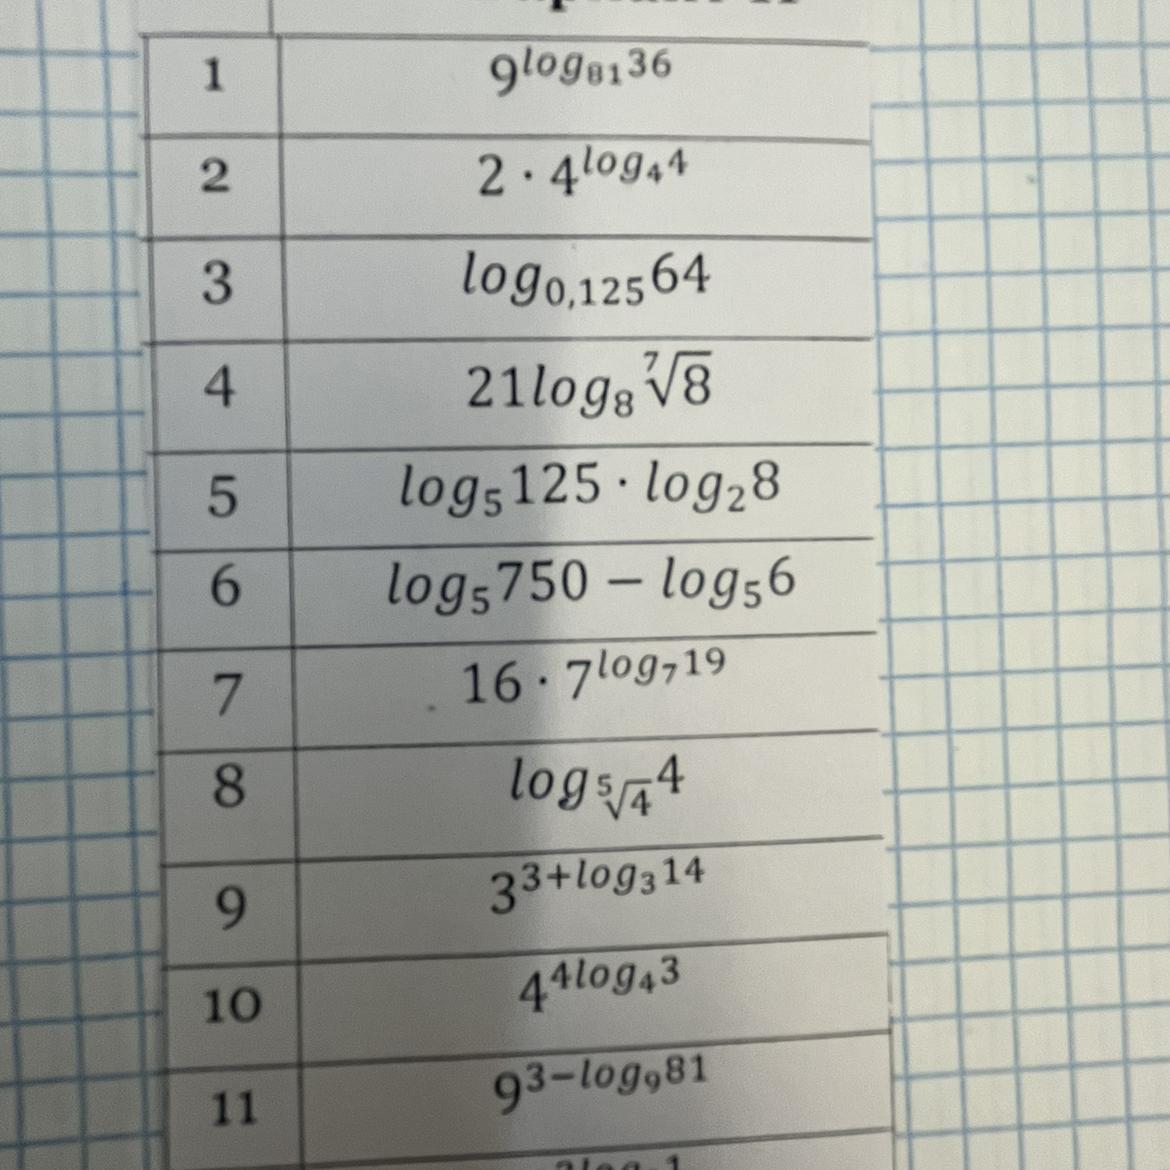 1 9^{log_{81}36}
2 2 · 4^{log_4 4}
3 log_{0,125}64
4 21log_8 \sqrt[7]{8}
5 log_5 125 · log_2 8
6 log_5 750 − log_5 6
7 16 · 7^{log_7 19}
8 log_{\sqrt[5]{4}}4
9 3^{3+log_3 14}
10 4^{4log_4 3}
11 9^{3−log_9 81}